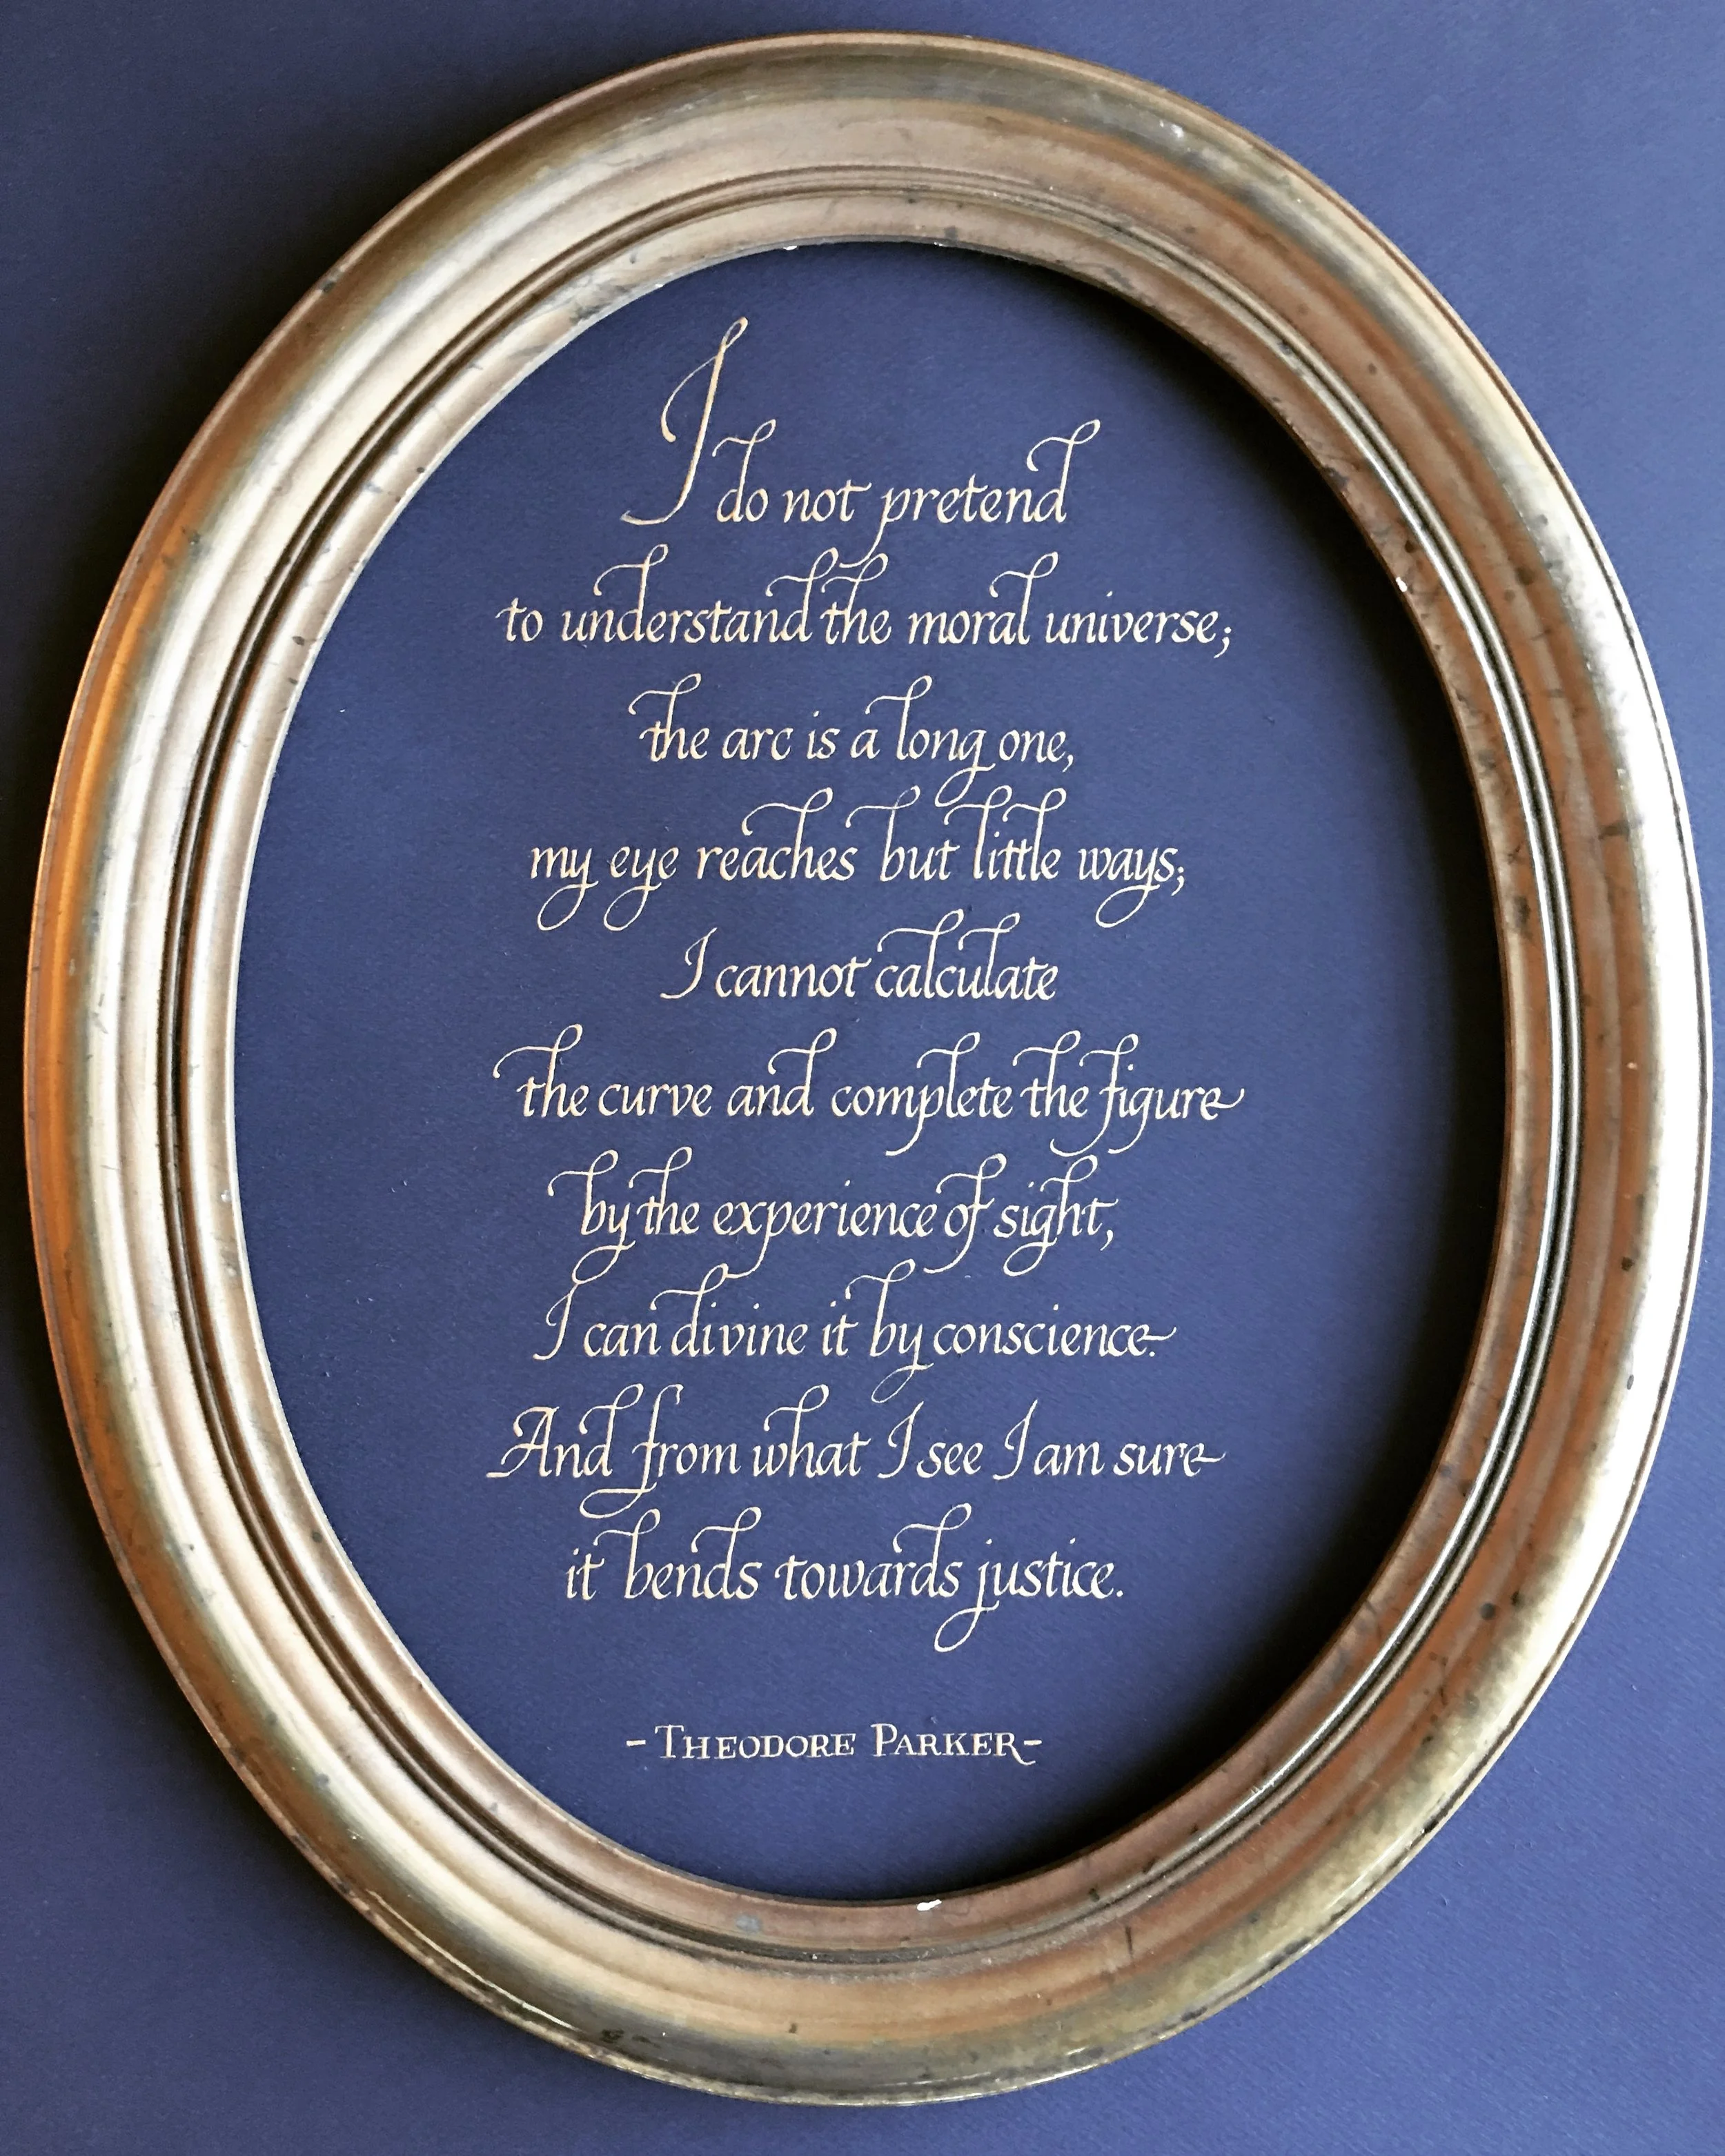 I do not pretend
to understand the moral universe;
the arc is a long one,
my eye reaches but little ways;
I cannot calculate
the curve and complete the figure
by the experience of sight,
I can divine it by conscience.
And from what I see I am sure
it bends towards justice.
-THEODORE PARKER-